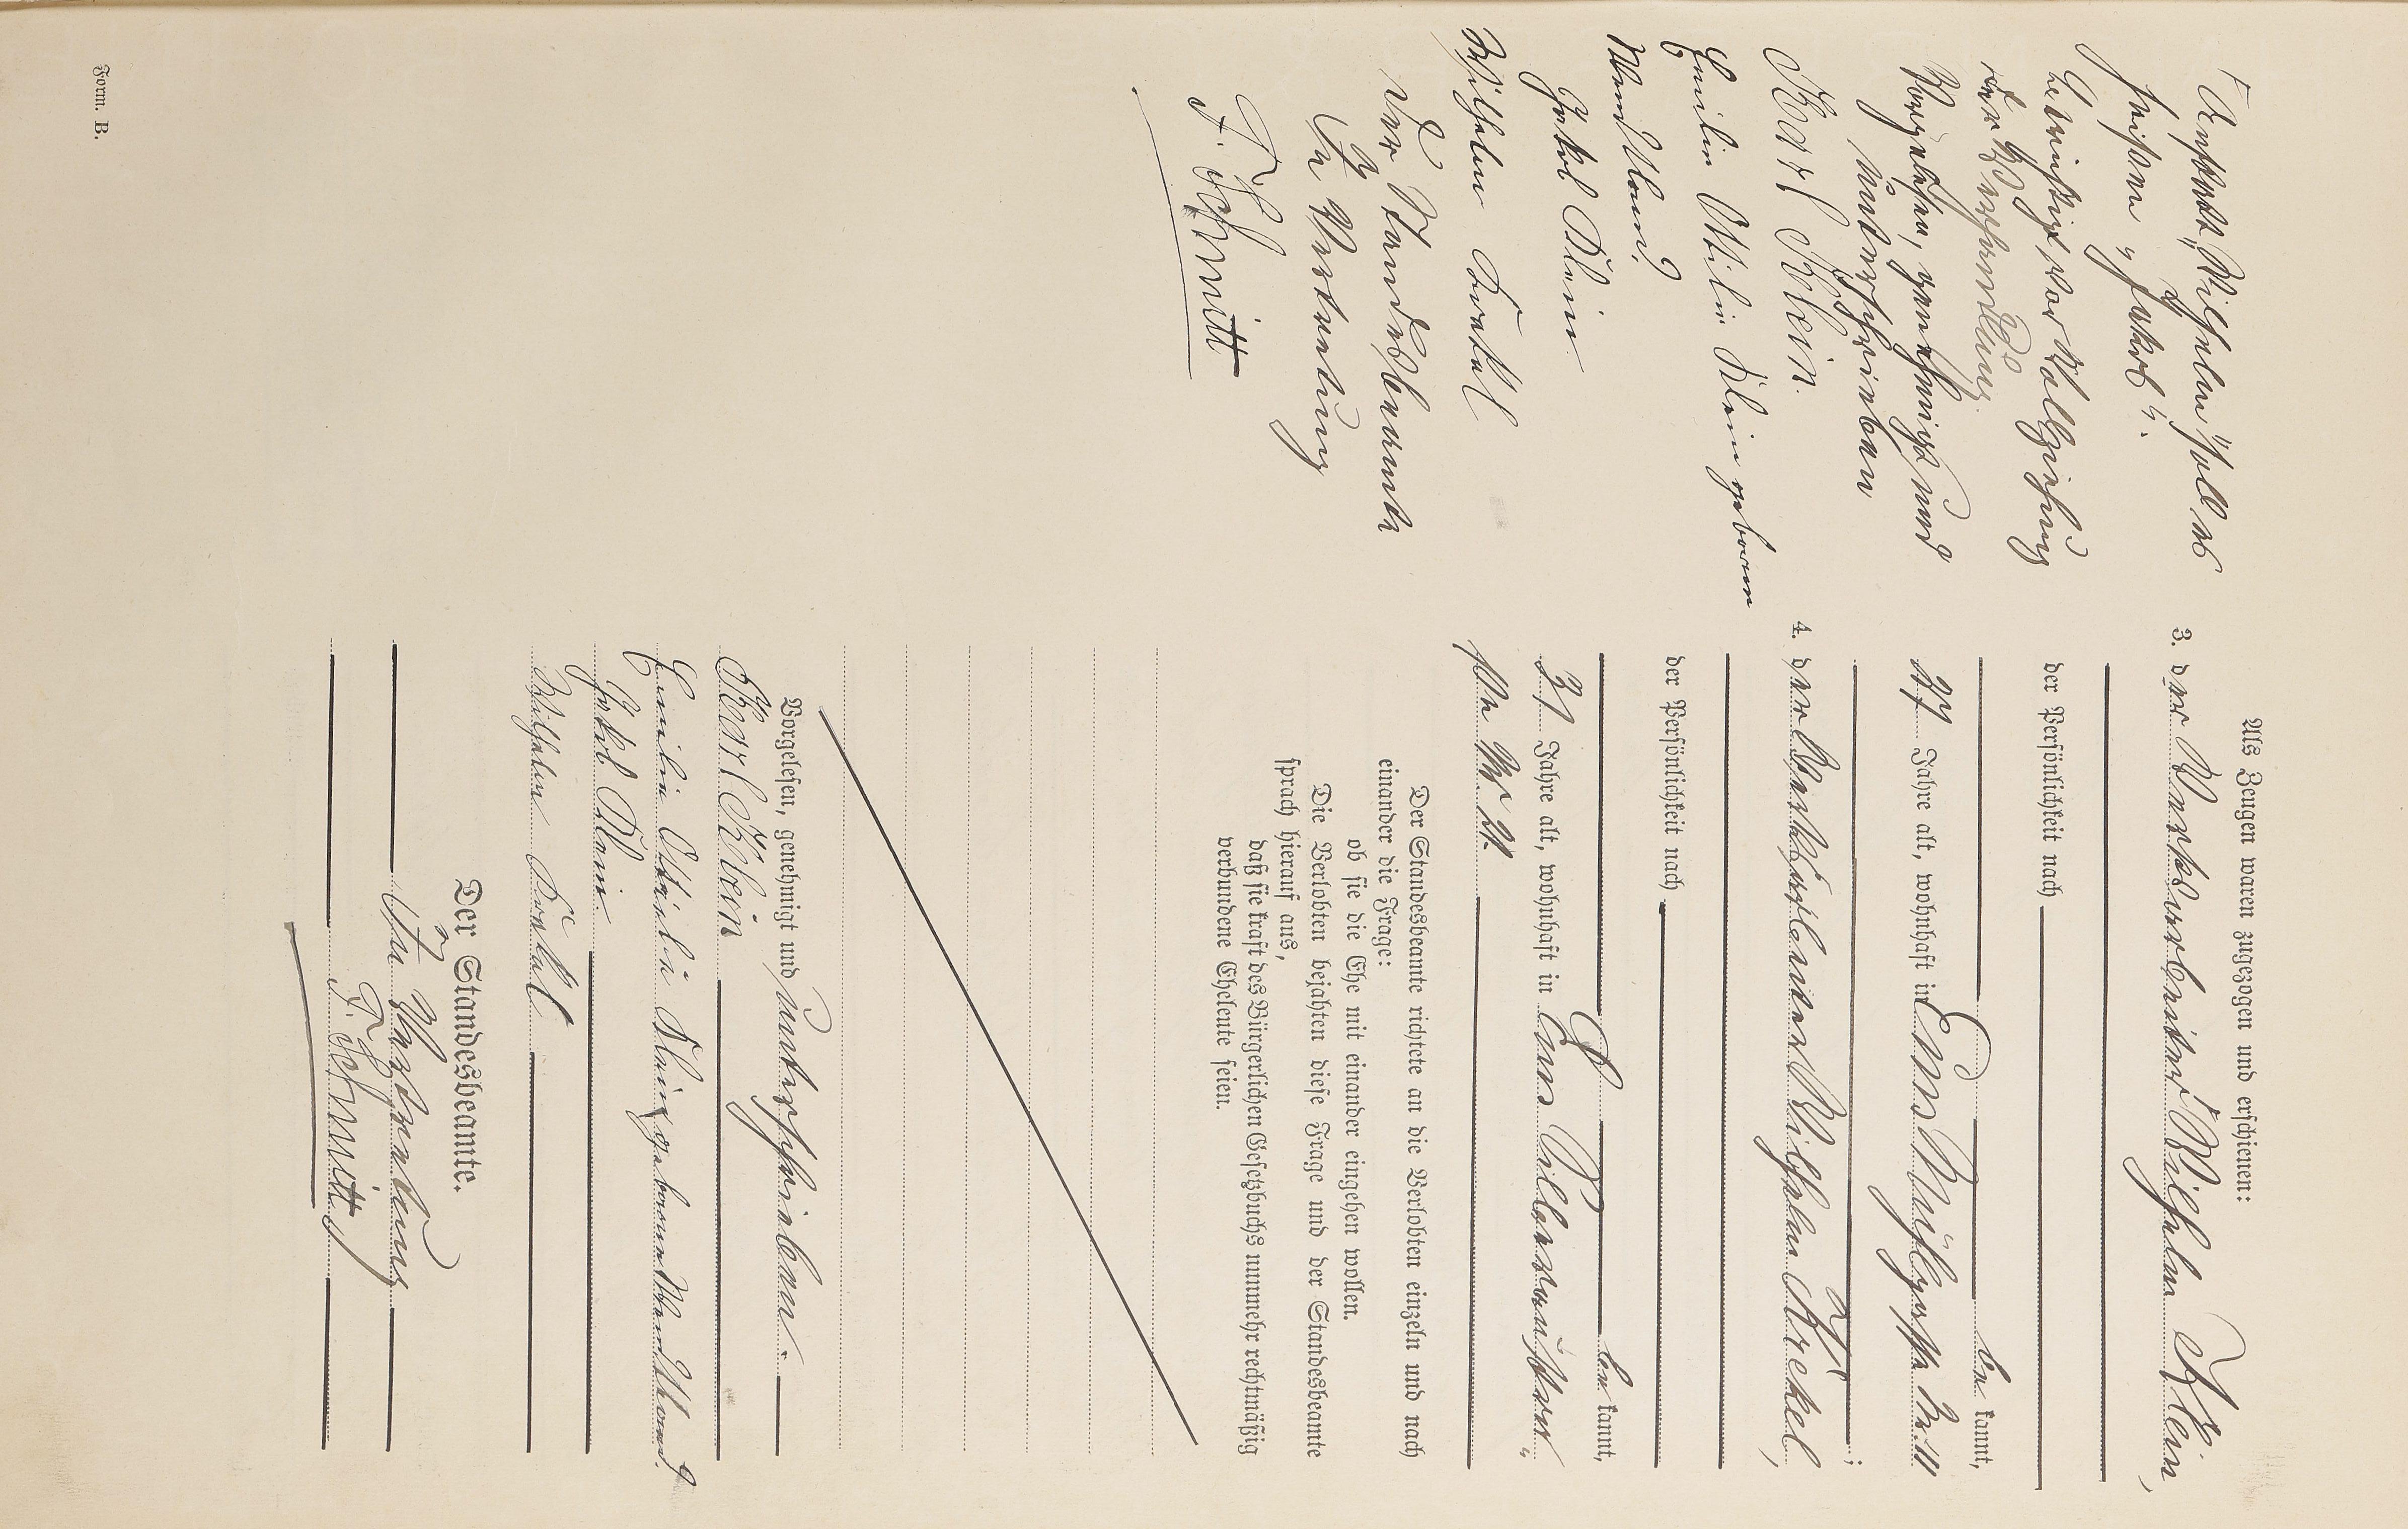 Als Zeugen waren zugezogen und erschienen:
3. der Werksarbeiter ⌈Wilhelm Klein,
der Persönlichkeit nach
be kannt,
27 Jahre alt, wohnhaft in Ems
4. der
Wilhelm
der Persönlichkeit nach
be kannt,
31 Jahre alt, wohnhaft in Ems
Der Standesbeamte richtete an die Verlobten einzeln und nach
einander die Frage:
ob sie die Ehe mit einander eingehen wollen.
Die Verlobten bejahten diese Frage und der Standesbeamte
sprach hierauf aus,
daß sie kraft des Bürgerlichen Gesetzbuchs nunmehr rechtmäßig
verbundene Eheleute seien.
Vorgelesen, genehmigt und unterschrieben.
Karl Klein
Emilie Ottilie Klein geborene
Jakob Klein
Wilhelm
Der Standesbeamte.
In Vertretung
F. Schmitt
⌈Anstatt „Wilhelm“ soll es
heißen „Jakob“.
Berichtigt vor Vollziehung
Vorgelesen, genehmigt und
unterschrieben
Karl Klein.
Emilie Ottilie Klein geborene
Jakob Klein
Wilhelm
Der Standesbeamte
In Vertretung
F. Schmitt
Form. B.